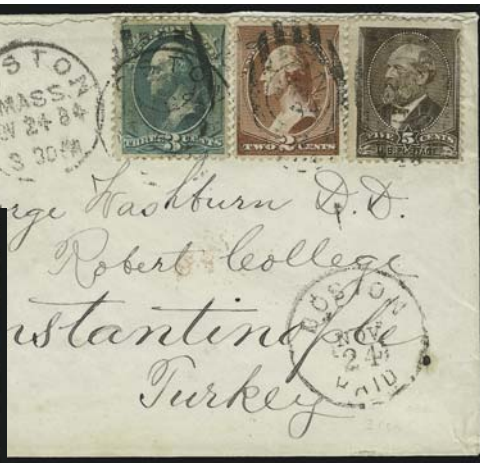 BOSTON
MASS.
NOV 24 84
3 30 PM
THREE 3 CENTS
TWO 2 CENTS
FIVE 5 CENTS
rge Washburn D.D.
Robert College
nstantinople
Turkey
BOSTON
NOV
24
PAID